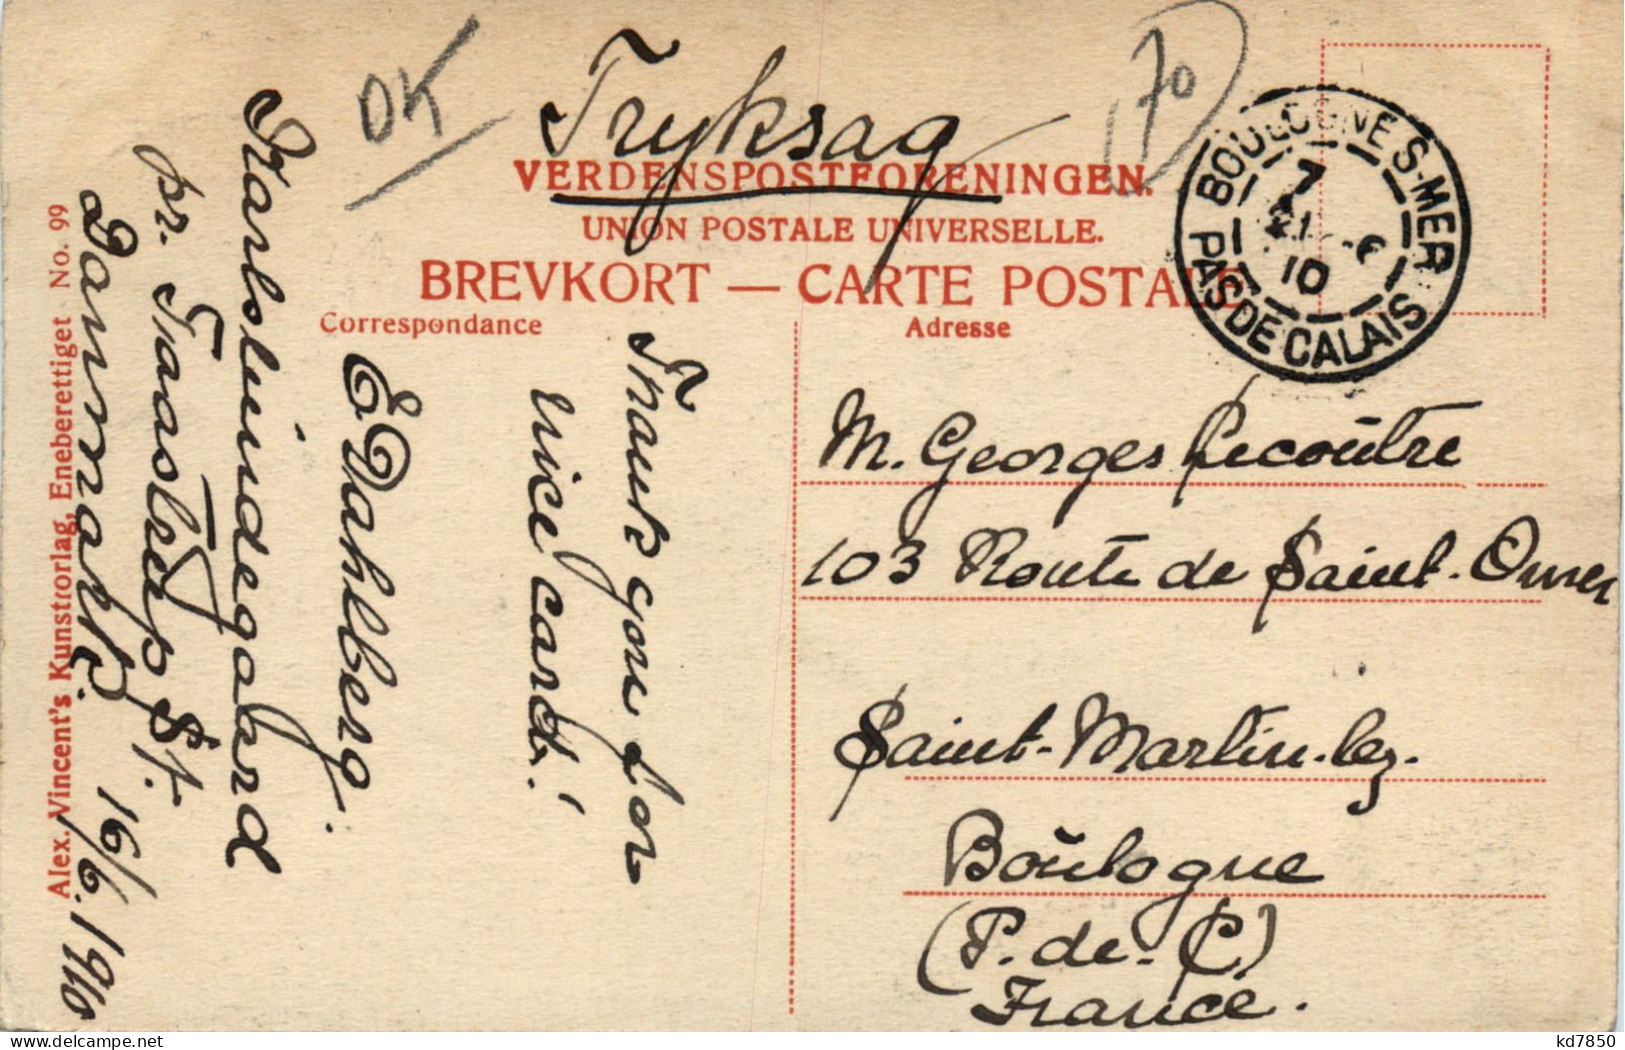 OK
Tryksag
70
VERDENSPOSTFORENINGEN.
UNION POSTALE UNIVERSELLE.
BREVKORT — CARTE POSTALE
Correspondance
Adresse
BOULOGNE S-MER
7
21 - 6
10
PAS DE CALAIS
Thank you for
nice card!
E Dahlberg.
Karlslundegaard
pr. Taastrup St.
Danmark.
16/6. 1910
Alex. Vincent's Kunstforlag, Eneberettiget No. 99
M. Georges Lecoûtre
103 Route de Saint-Omer
Saint-Martin-lez-
Boulogne
(P.-de-C)
France.
kd7850